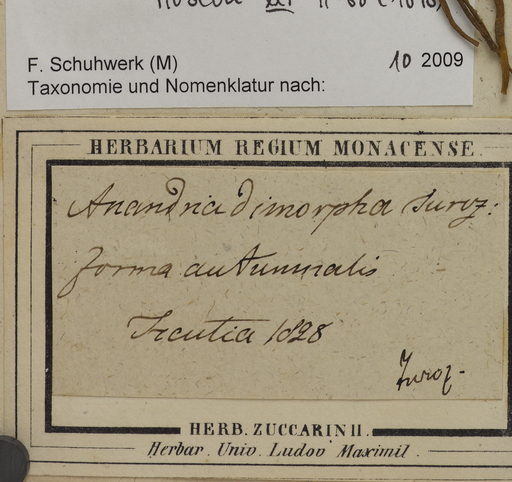 F. Schuhwerk (M) 10 2009
Taxonomie und Nomenklatur nach:
HERBARIUM REGIUM MONACENSE.
Anandria dimorpha Turcz:
forma autumnalis
Ircutia 1828
Turcz.
HERB. ZUCCARINII.
Herbar. Univ. Ludov Maximil.